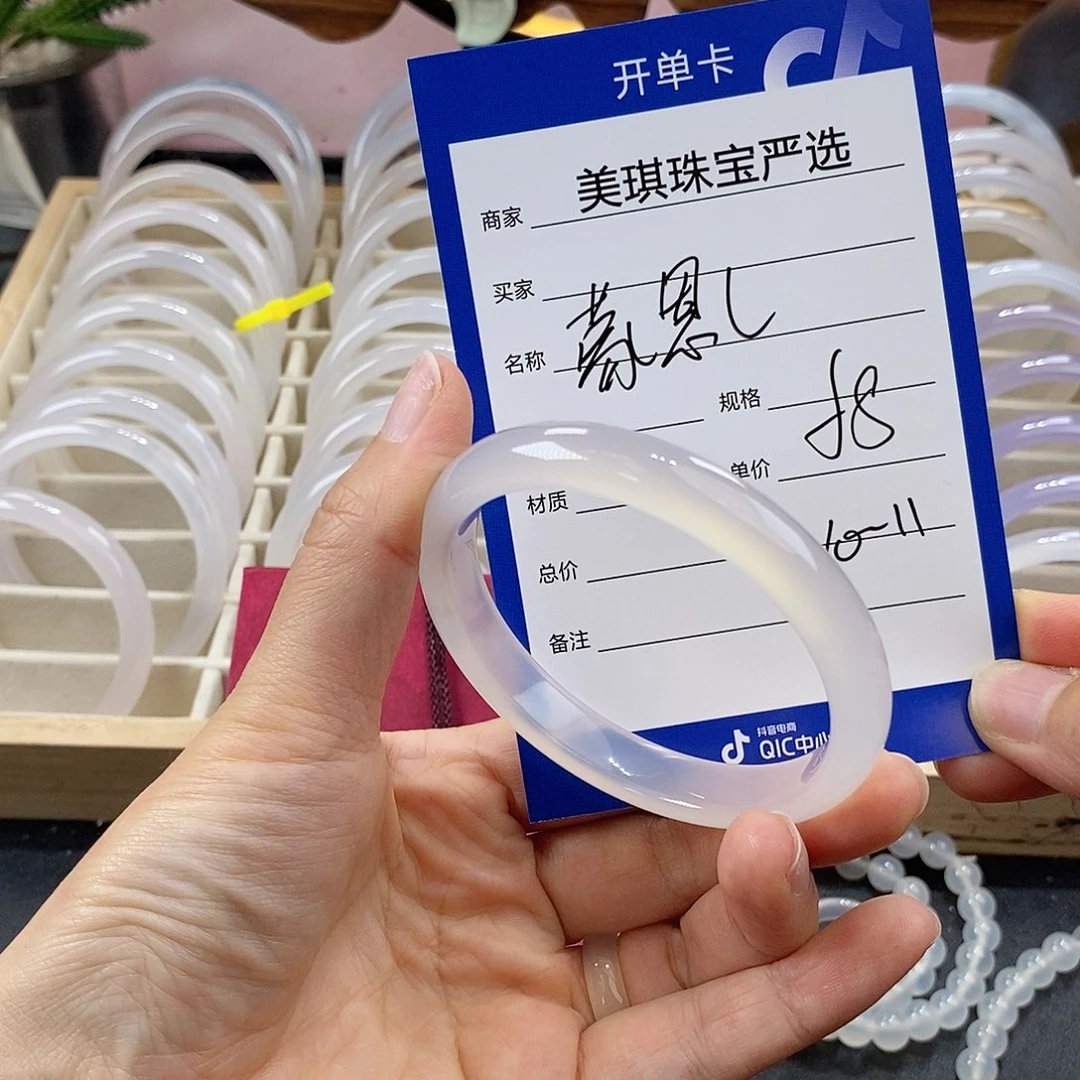 开单卡
商家 美琪珠宝严选
买家
名称
规格 58
单价
材质
10-11
总价
备注
抖音电商
QIC中心